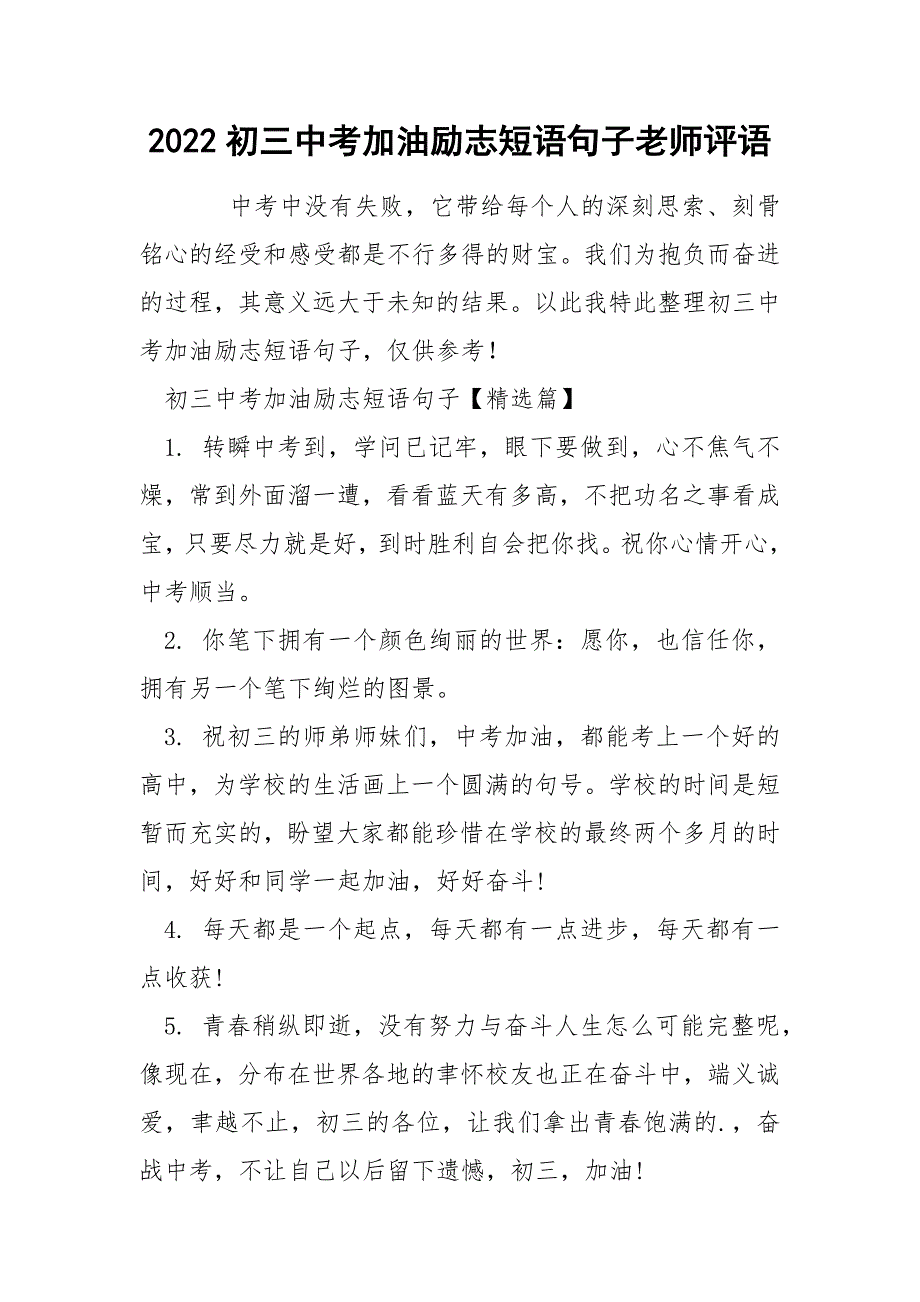 2022初三中考加油励志短语句子老师评语
中考中没有失败，它带给每个人的深刻思索、刻骨
铭心的经受和感受都是不行多得的财宝。我们为抱负而奋进
的过程，其意义远大于未知的结果。以此我特此整理初三中
考加油励志短语句子，仅供参考！
初三中考加油励志短语句子【精选篇】
1. 转瞬中考到，学问已记牢，眼下要做到，心不焦气不
燥，常到外面溜一遭，看看蓝天有多高，不把功名之事看成
宝，只要尽力就是好，到时胜利自会把你找。祝你心情开心，
中考顺当。
2. 你笔下拥有一个颜色绚丽的世界：愿你，也信任你，
拥有另一个笔下绚烂的图景。
3. 祝初三的师弟师妹们，中考加油，都能考上一个好的
高中，为学校的生活画上一个圆满的句号。学校的时间是短
暂而充实的，盼望大家都能珍惜在学校的最终两个多月的时
间，好好和同学一起加油，好好奋斗!
4. 每天都是一个起点，每天都有一点进步，每天都有一
点收获!
5. 青春稍纵即逝，没有努力与奋斗人生怎么可能完整呢，
像现在，分布在世界各地的聿怀校友也正在奋斗中，端义诚
爱，聿越不止，初三的各位，让我们拿出青春饱满的.，奋
战中考，不让自己以后留下遗憾，初三，加油!